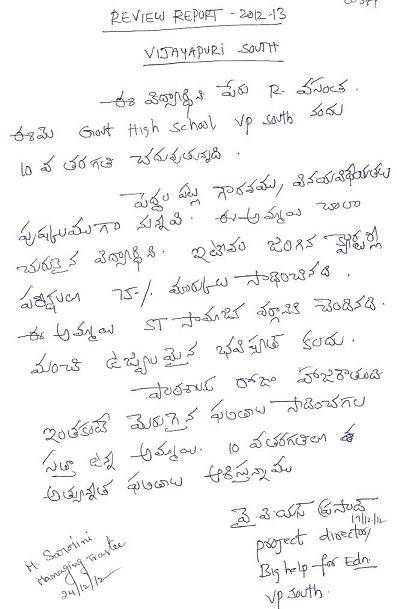 REVIEW REPORT - 2012-13
VIJAYAPURI SOUTH
ఈ విద్యార్థిని పేరు R. వసంత.
ఈమె Govt High School, VP South నందు
10 వ తరగతి చదువుతున్నది.
పెద్దల పట్ల గౌరవము, వినయవిధేయతలు
పుష్కలముగా నున్నవి. ఈ అమ్మాయి చాలా
చురుకైన విద్యార్థిని. ఇటీవల జరిగిన క్వార్టర్లీ
పరీక్షలలో 75% మార్కులు సాధించినది.
ఈ అమ్మాయి ST సామాజిక వర్గానికి చెందినది.
మంచి ఉజ్వలమైన భవిష్యత్ కలదు.
పాఠశాలకు రోజూ హాజరౌతుంది.
ఇంతకంటే మెరుగైన ఫలితాలు సాధించగల
సత్తా ఉన్న అమ్మాయి. 10 వ తరగతిలో
అత్యున్నత ఫలితాలు ఆశిస్తున్నాము
వై. వి. యస్ ప్రసాద్
17/12/12
project director,
Big help for Edn.
VP South.
H. Sarojini
Managing Trustee
24/12/12